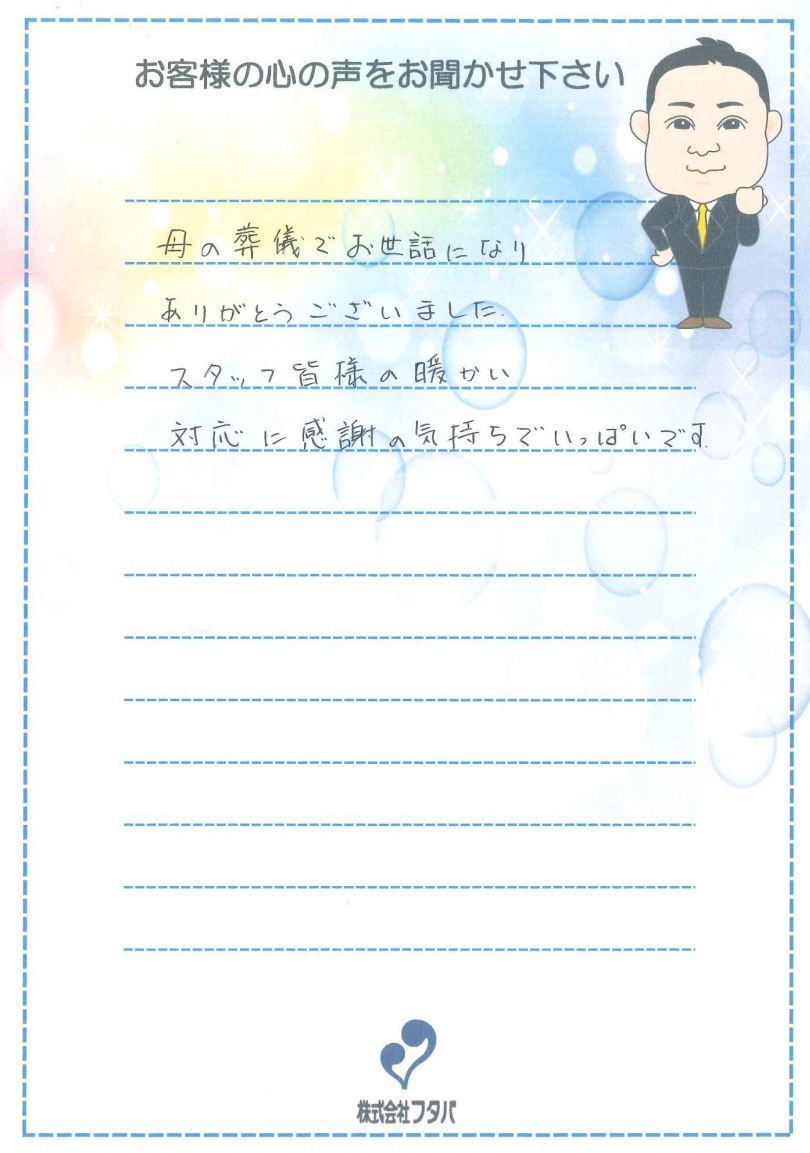 お客様の心の声をお聞かせ下さい
母の葬儀でお世話になり
ありがとうございました.
スタッフ皆様の暖かい
対応に感謝の気持ちでいっぱいです.
株式会社フタバ